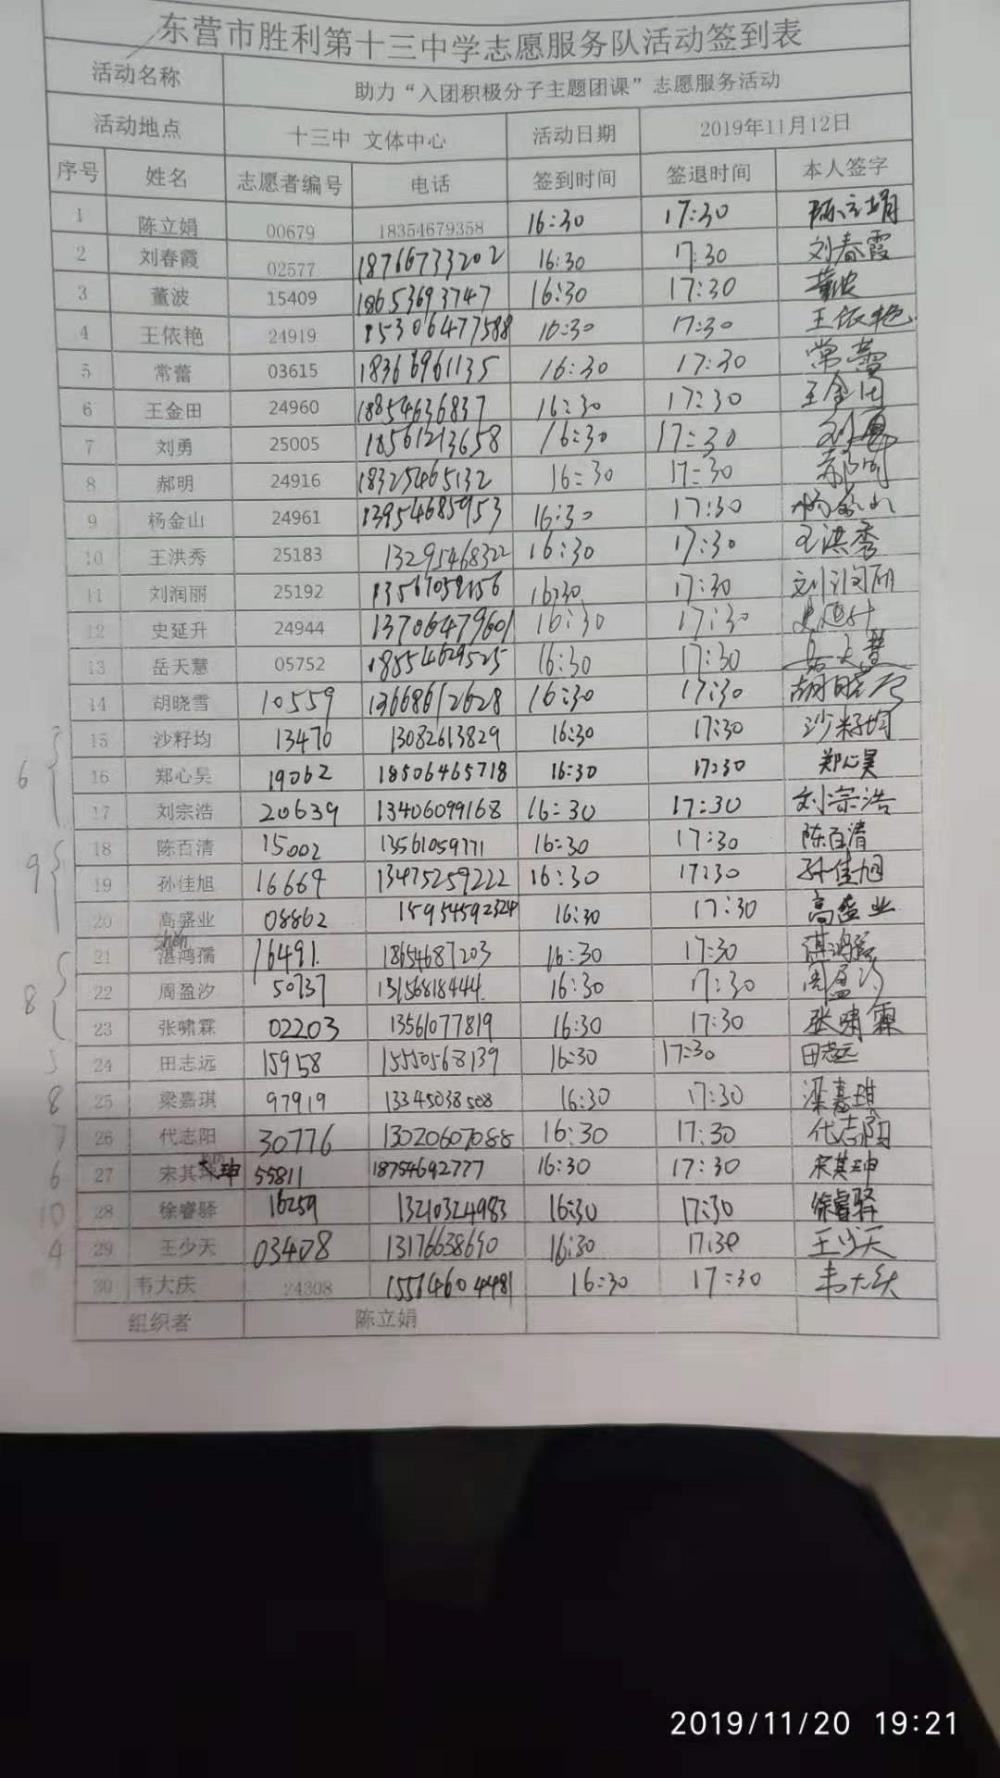 东营市胜利第十三中学志愿服务队活动签到表
活动名称 助力“入团积极分子主题团课”志愿服务活动
活动地点 十三中 文体中心 活动日期 2019年11月12日
序号 姓名 志愿者编号 电话 签到时间 签退时间 本人签字
1 陈立娟 00679 18354679358 16:30 17:30 陈立娟
2 刘春霞 02577 18766733202 16:30 17:30 刘春霞
3 董波 15409 18653693747 16:30 17:30 董波
4 王依艳 24919 15306477588 16:30 17:30 王依艳
5 常蕾 03615 18366961135 16:30 17:30 常蕾
6 王金田 24960 18854636837 16:30 17:30 王金田
7 刘勇 25005 18561213658 16:30 17:30 刘勇
8 郝明 24916 18325465132 16:30 17:30 郝明
9 杨金山 24961 13954685953 16:30 17:30 杨金山
10 王洪秀 25183 13295468322 16:30 17:30 王洪秀
11 刘润丽 25192 16:30 17:30 刘润丽
12 史延升 24944 13706479601 16:30 17:30 史延升
13 岳天慧 05752 18854629525 16:30 17:30 岳天慧
14 胡晓雪 10559 13668612628 16:30 17:30 胡晓雪
15 沙籽均 13470 13082613829 16:30 17:30 沙籽均
6 16 郑心昊 19062 18506465718 16:30 17:30 郑心昊
17 刘宗浩 20639 13406099168 16:30 17:30 刘宗浩
18 陈百清 15002 13561059771 16:30 17:30 陈百清
9 19 孙佳旭 16664 13475259222 16:30 17:30 孙佳旭
20 高盛业 08862 15954592324 16:30 17:30 高盛业
21 湛鸿孺 16491. 18654687203 16:30 17:30
8 22 周盈汐 50737 15156818444 16:30 17:30 周盈汐
23 张啸霖 02203 13561077819 16:30 17:30 张啸霖
5 24 田志远 15958 15550568139 16:30 17:30 田志远
8 25 梁嘉琪 97919 13345038508 16:30 17:30 梁嘉琪
7 26 代志阳 30776 13020607088 16:30 17:30 代志阳
6 27 宋其珅 55811 18754692777 16:30 17:30 宋其珅
10 28 徐睿驿 16259 13210324983 16:30 17:30 徐睿驿
4 29 王少天 03408 13176638690 16:30 17:30 王少天
30 韦大庆 24308 15514604481 16:30 17:30 韦大庆
组织者 陈立娟
2019/11/20 19:21